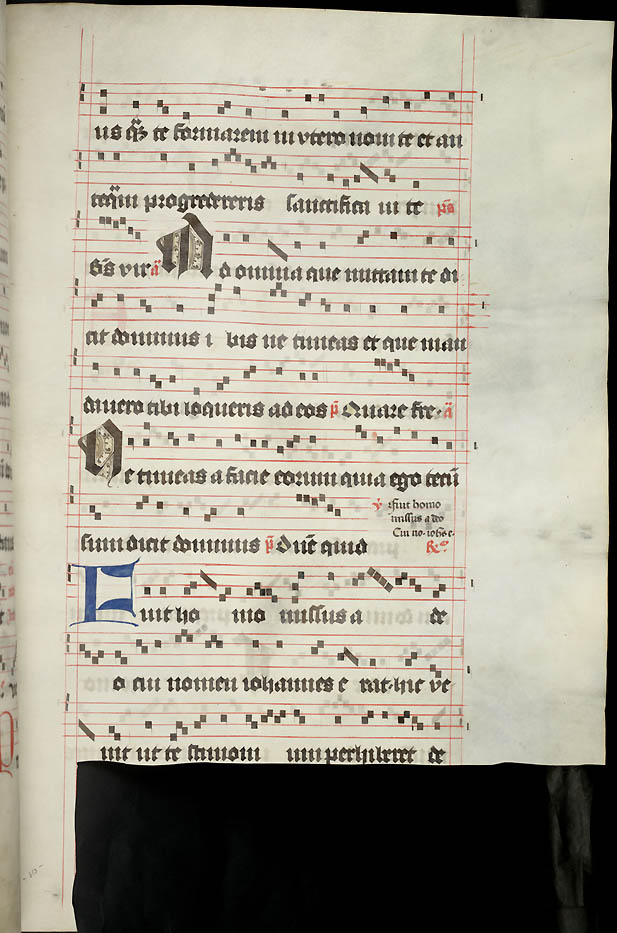 us q̃ȝ te formarem in vtero noui te et an
teq̃ȝ progredereris sanctifica ui te p̄s
Bt̄s vir ã Ad omnia que mittam te di
cit dominus i bis ne timeas et que man
dauero tibi loqueris ad eos p̄ Quare fre. ã
Ne timeas a facie eorum quia ego tecū
sum dicit dominus p̄ Dn̄e quid
℣ ffuit homo
missus a deo
Cui no. ioh̄es e.
℟ꝰ
Fuit ho mo missus a de
o cui nomen iohannes e rat. hic ve
nit ut te stimoni um perhiberet de